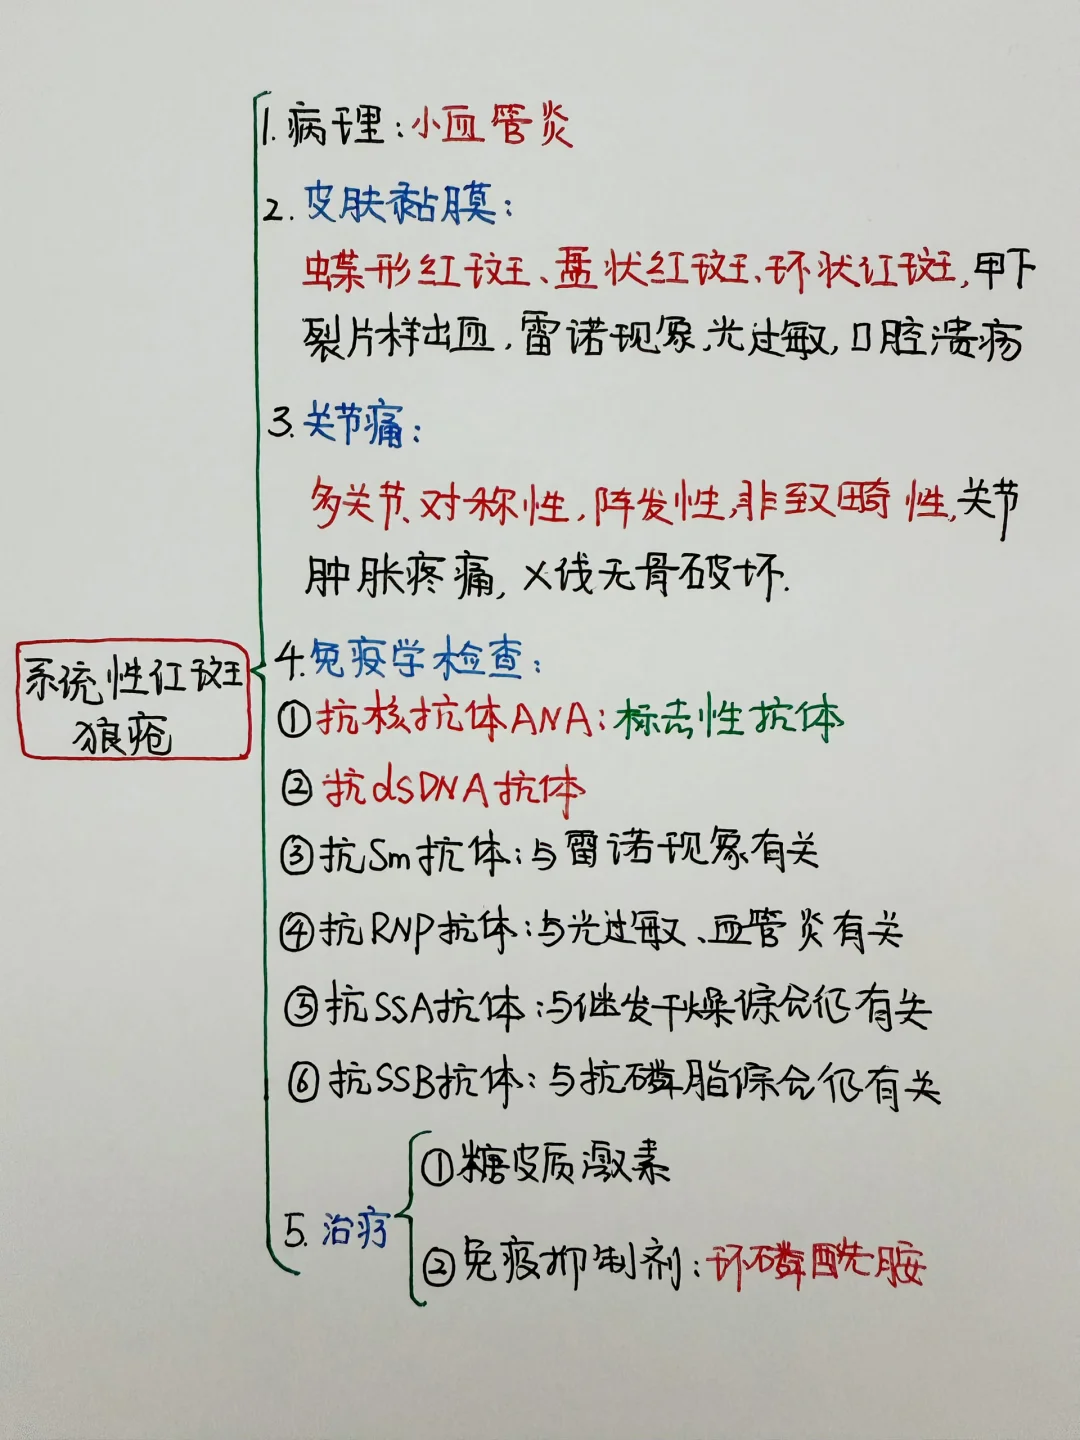 1. 病理：小血管炎
2. 皮肤黏膜：
蝶形红斑、盘状红斑、环状红斑，甲下
裂片样出血，雷诺现象，光过敏，口腔溃疡
3. 关节痛：
多关节、对称性，阵发性，非致畸性，关节
肿胀疼痛，X线无骨破坏.
系统性红斑
狼疮
4. 免疫学检查：
①抗核抗体ANA：标志性抗体
②抗dsDNA抗体
③抗Sm抗体：与雷诺现象有关
④抗RNP抗体：与光过敏、血管炎有关
⑤抗SSA抗体：与继发干燥综合征有关
⑥抗SSB抗体：与抗磷脂综合征有关
5. 治疗
①糖皮质激素
②免疫抑制剂：环磷酰胺